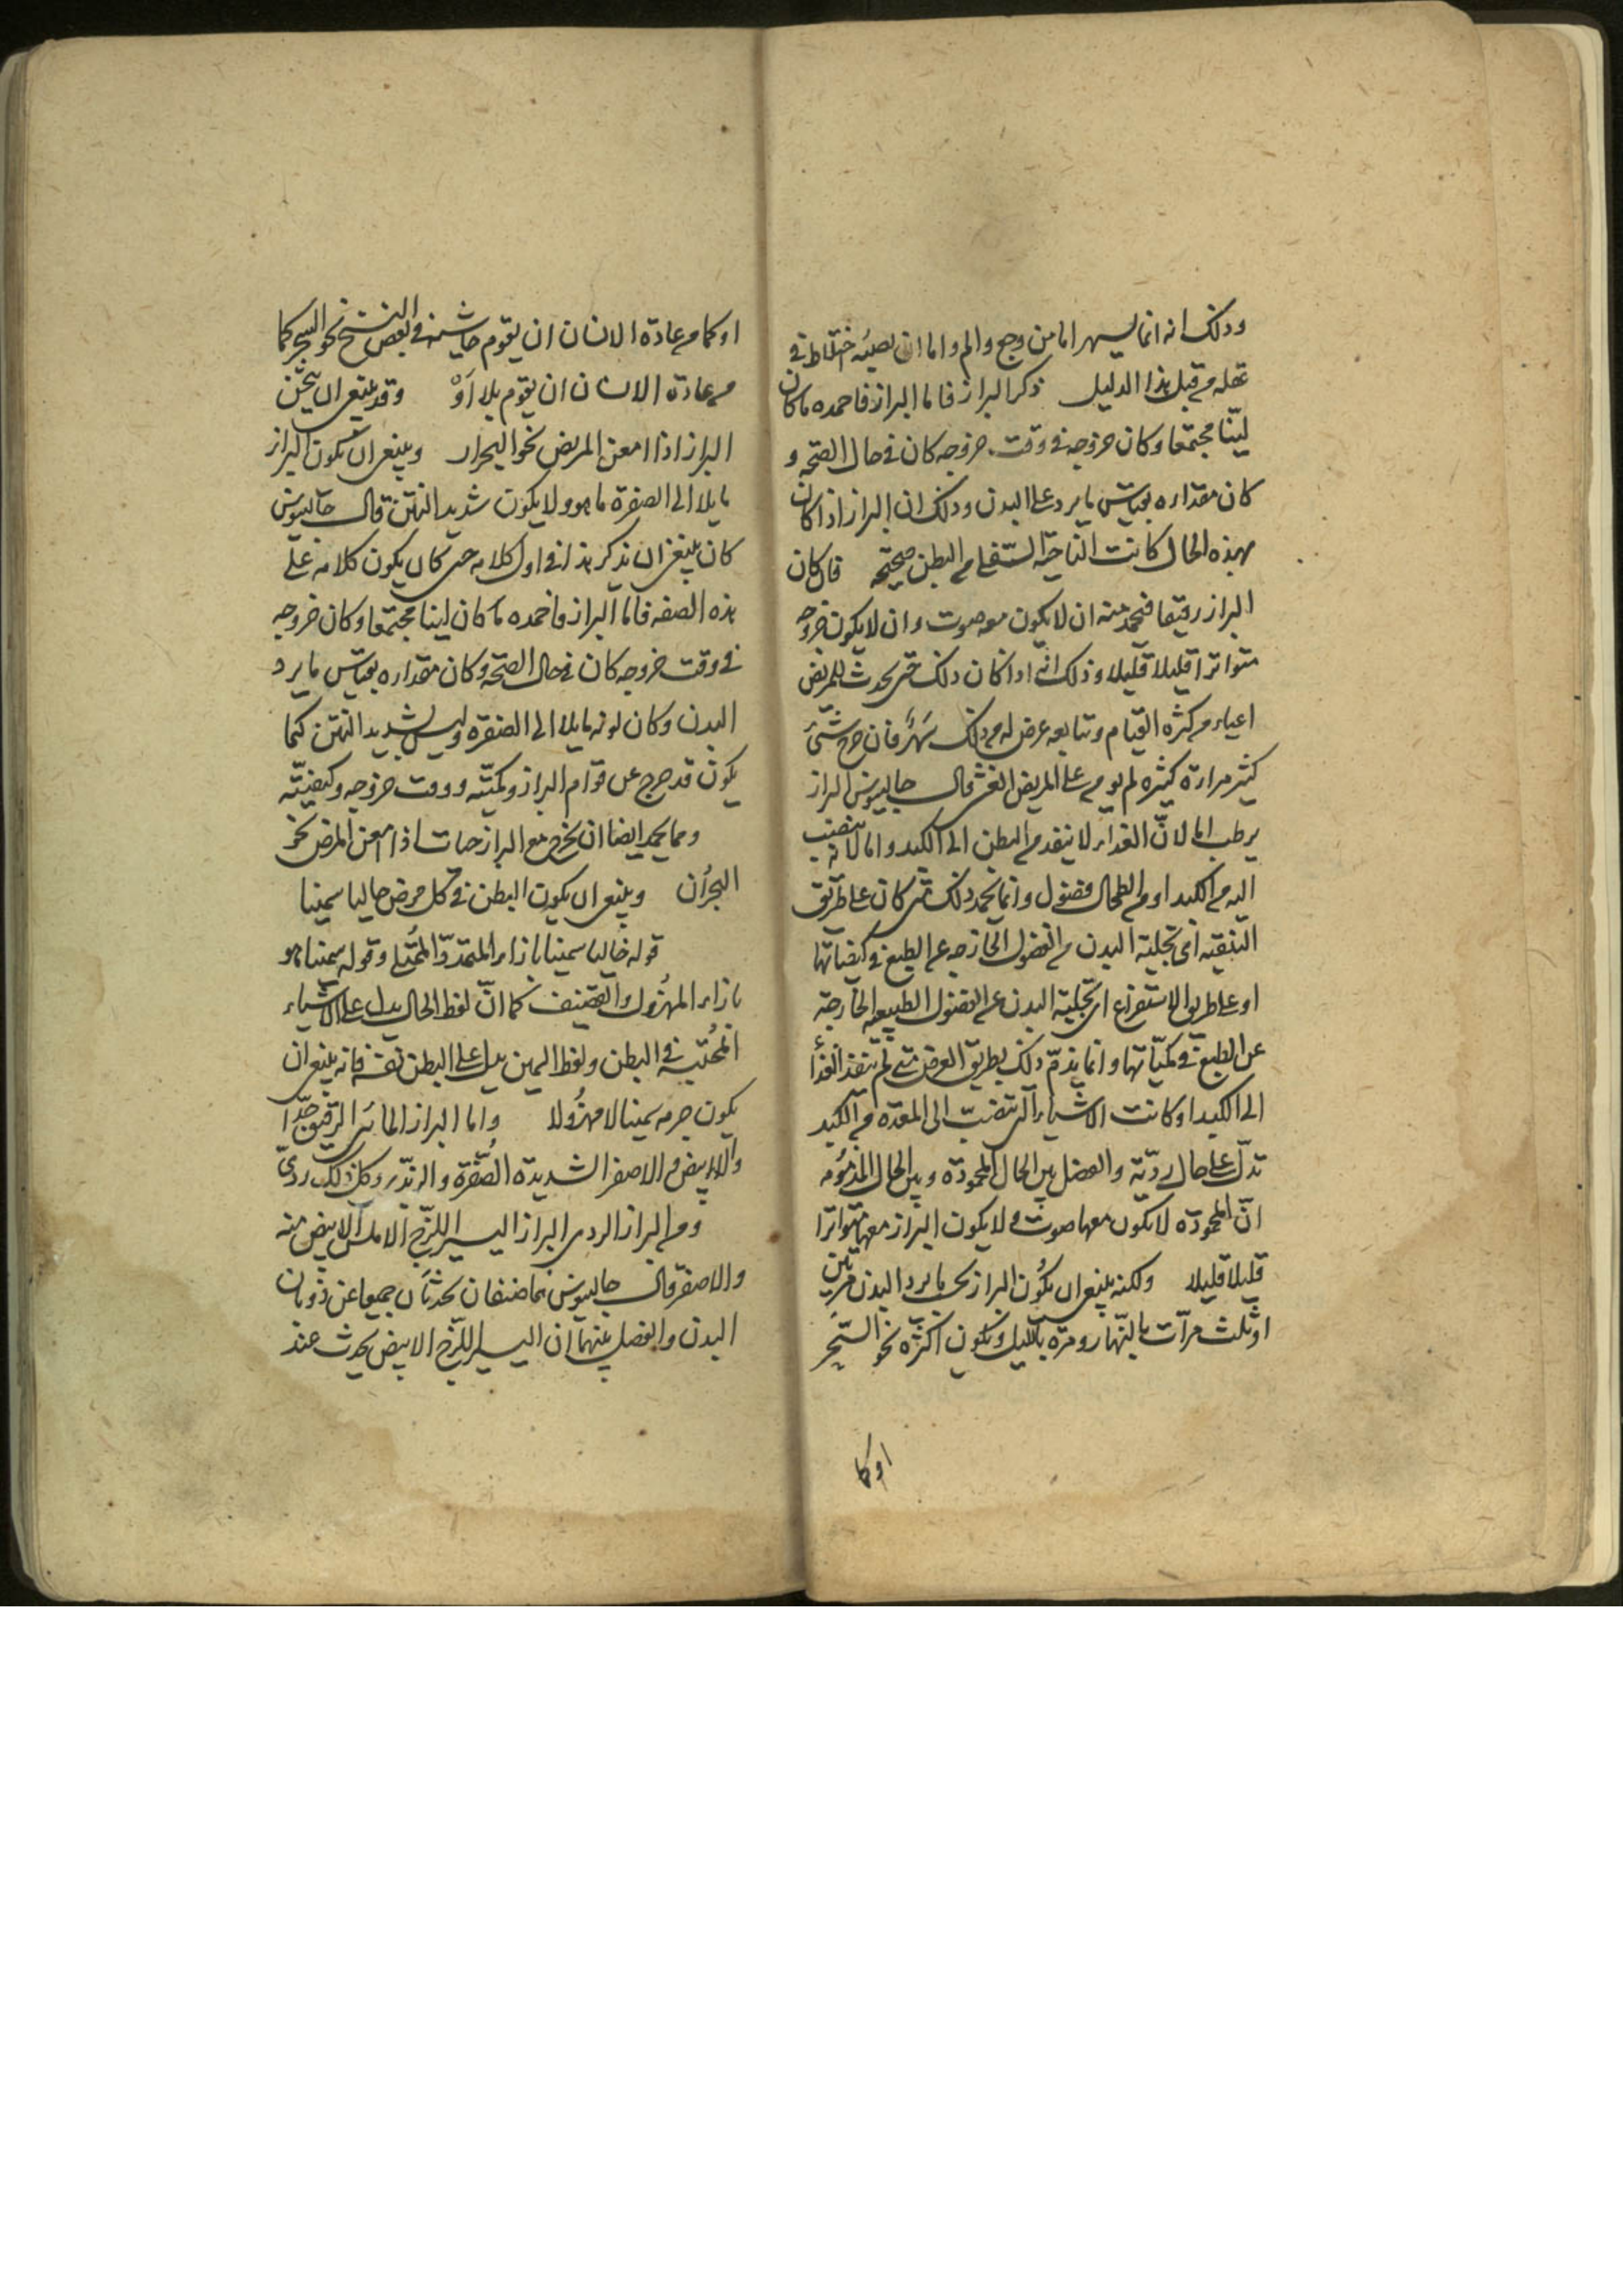 وذلك انه انما يسهر اما من وجع والم واما ان يصيبه اختلاط في
عقله من قبل هذا الدليل ذكر البراز فاما البراز فاحمده ما كان
لينا مجتمعا وكان خروجه في وقت خروجه كان في حال الصحة و
كان مقداره بقياس ما يرد على البدن وذلك ان البراز اذا كان
بهذه الحال كانت الناحية السفلى من البطن صحيحة فان كان
البراز رقيقا فيحمد منه ان لا يكون معه صوت وان لا يكون خروجه
متواترا قليلا قليلا وذلك انه اذا كان ذلك حتى يحدث للمريض
اعياء من كثرة القيام وتتابعه عرض له من ذلك سهر فان خرج شيئ
كثير مرارة كثيره لم يومن على المريض الغشى قال جالينوس البراز
يرطب اما لان الغذاء لا ينفد من البطن الى الكبد واما لانه ينصب
اليه من الكبد او من الطحال فضول وانما يحمد ذلك متى كان على طريق
التنقيه اى تخلية البدن من الفضول الخارجه عن الطبع في كيفياتها
او على طريق الاستفراغ اى تخلية البدن عن الفضول الطبيعيه الخارجة
عن الطبع في كمياتها وانما يذم ذلك بطريق العرض متى لم ينفذ الغذأ
الى الكبد او كانت الاشياء التى تنصب الى المعدة من الكبد
تدل على حال رديّة والفصل بين الحال المحمودة وبين الحال المذمومه
انّ المحموده لا يكون معها صوت ولا يكون البراز معها متواترا
قليلا قليلا ولكنه ينبغى ان يكون البراز بحسب ما يرد البدن مرتين
او ثلث مرات بالنهار ومرة بالليل ويكون اكثره نحو السحر
اوكما
اوكما من عادة الانسان ان يقوم حاشية في بعض النسخ نحو السحر كما
من عادة الانسان ان يقوم بلا اَوْ وقد ينبغى ان يثخن
البراز اذا امعن المريض نحو البحران وينبغى ان يكون البراز
مايلا الى الصفرة ما هو ولا يكون شديد النتن قال جالينوس
كان ينبغى ان يذكر هذا في اول كلامه حتى كان يكون كلامه على
هذه الصفه فاما البراز فاحمده ما كان لينا مجتمعا وكان خروجه
في وقت خروجه كان في حال الصحة وكان مقداره بقياس ما يرد
البدن وكان لونه مايلا الى الصفرة وليس بشديد النتن كيما
يكون قد خرج عن قوام البراز وكميته ووقت خروجه وكيفيته
ومما يحمد ايضا ان يخرج مع البراز حيات اذا امعن المرض نحو
البحران وينبغى ان يكون البطن في كل مرض خاليا سمينا
قوله خاليا سمينا بازاء المتمدد الممتلى وقوله سمينا هو
بازاء المهزول والضعيف كما انّ لفظ الخال يدل على الاشياء
المحتبسه في البطن ولفظ السمين يدل على البطن نفسه فانه ينبغى ان
يكون جرمه سمينا لا مهزولا واما البراز المائى الرقيق جدّا
والابيض والاصفر الشديدة الصفرة والزبدى وكل ذلك ردىّ
ومن البراز الردى البراز اليسير اللزج الاملس الابيض منه
والاصفر قال جالينوس هما صنفان يحدثان جميعا عن ذوبان
البدن والفصل بينهما ان اليسير اللزج الابيض يحدث عند